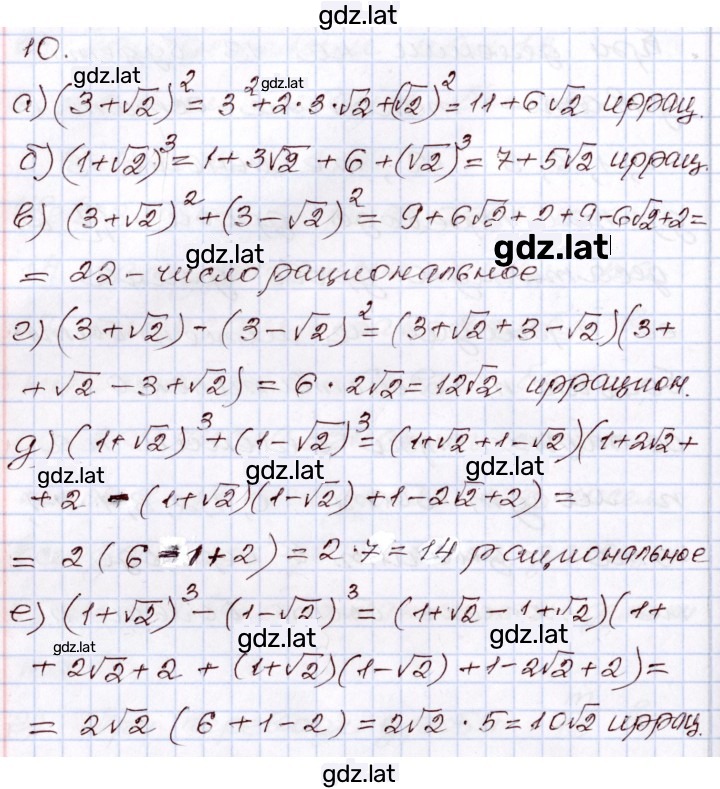 gdz.lat
10.
gdz.lat
gdz.lat
а) (3+√2)² = 3² + 2·3·√2 + (√2)² = 11 + 6√2 иррац.
б) (1+√2)³ = 1 + 3√2 + 6 + (√2)³ = 7 + 5√2 иррац.
в) (3+√2)² + (3-√2)² = 9 + 6√2 + 2 + 9 - 6√2 + 2 =
gdz.lat
gdz.lat
= 22 - число рациональное
г) (3+√2) - (3-√2)² = (3+√2+3-√2)(3+
+√2 - 3 + √2) = 6 · 2√2 = 12√2 иррацион.
д) (1+√2)³ + (1-√2)³ = (1+√2+1-√2)(1+2√2+
gdz.lat
gdz.lat
gdz.lat
+ 2 - (1+√2)(1-√2) + 1 - 2√2 + 2) =
= 2 (6 - 1 + 2) = 2 · 7 = 14 рациональное
е) (1+√2)³ - (1-√2)³ = (1+√2-1+√2)(1+
gdz.lat
gdz.lat
gdz.lat
+ 2√2 + 2 + (1+√2)(1-√2) + 1 - 2√2 + 2) =
= 2√2 (6 + 1 - 2) = 2√2 · 5 = 10√2 иррац.
gdz.lat